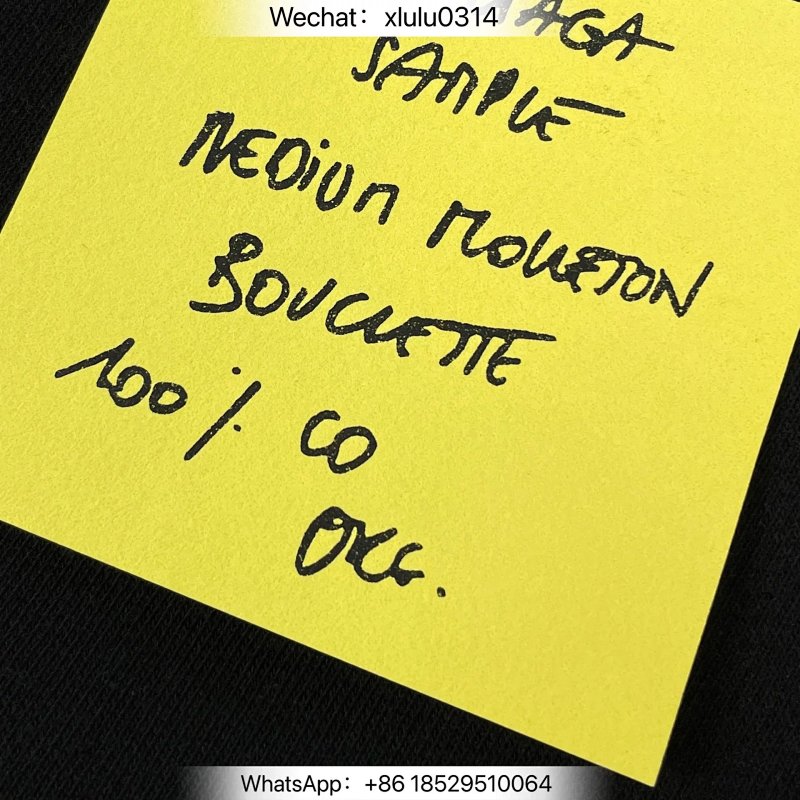 Wechat： xlulu0314
SAMPLE
MEDIUM MOLLETON
BOUCLETTE
100 % CO
ORG.
WhatsApp：+86 18529510064